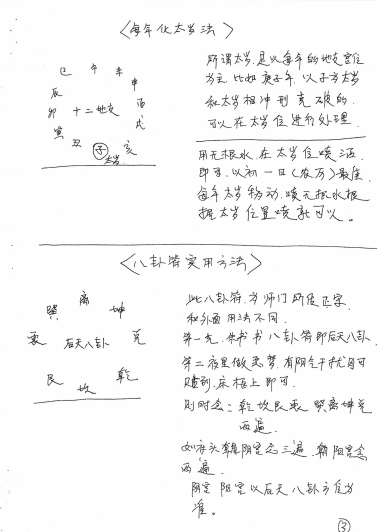 〈每年化太岁法〉
巳 午 未
辰 申
卯 十二地支 酉
寅 戌
丑 子 亥
太岁
所谓太岁,是以每年的地支宫位
为主,比如庚子年,以子为太岁
和太岁相冲刑克破的.
可以在太岁位进行处理.
用无根水,在太岁位喷洒.
即可.以初一日(农历)最佳
每年太岁移动.喷无根水根
据太岁位置喷就可以。
〈八卦符实用方法〉
巽 离 坤
震 后天八卦 兑
艮 坎 乾
此八卦符,为师门所传正宗.
和外面用法不同.
第一先,朱书书八卦符即后天八卦.
第二夜里做恶梦,有阴气干扰自可
到,床梧上即可.
时念:乾坎艮震 巽离坤兑
两遍.
如床头朝阴宫念三遍,朝阳宫念
两遍.
阴宫 阳宫以后天八卦方位为
准。
③